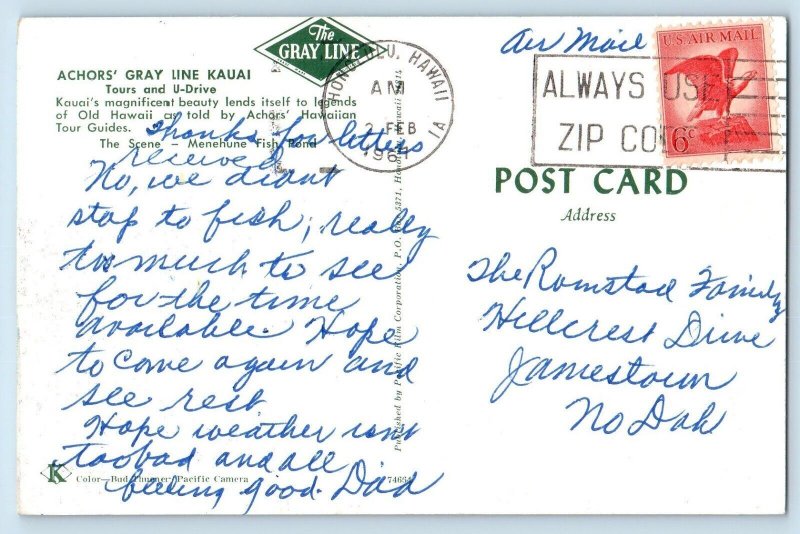 The
GRAY LINE
ACHORS' GRAY LINE KAUAI
Tours and U-Drive
Kauai's magnificent beauty lends itself to legends
of Old Hawaii as told by Achors' Hawaiian
Tour Guides.
The Scene – Menehune Fish Pond
Thanks for letters
received
No, we didnt
stop to fish; really
too much to see
for the time
available. Hope
to come again and
see rest
Hope weather isnt
too bad and all
feeling good. Dad
K
Color—Bud Pacific Camera
Published by Pacific Film Corporation, P.O. 5371, Hawaii
HONOLULU, HAWAII
AM
2 FEB
1964
Air Mail
ALWAYS USE
ZIP CODE
U.S. AIR MAIL
6c
POST CARD
Address
The Romstad Family
Hillcrest Drive
Jamestown
No Dak